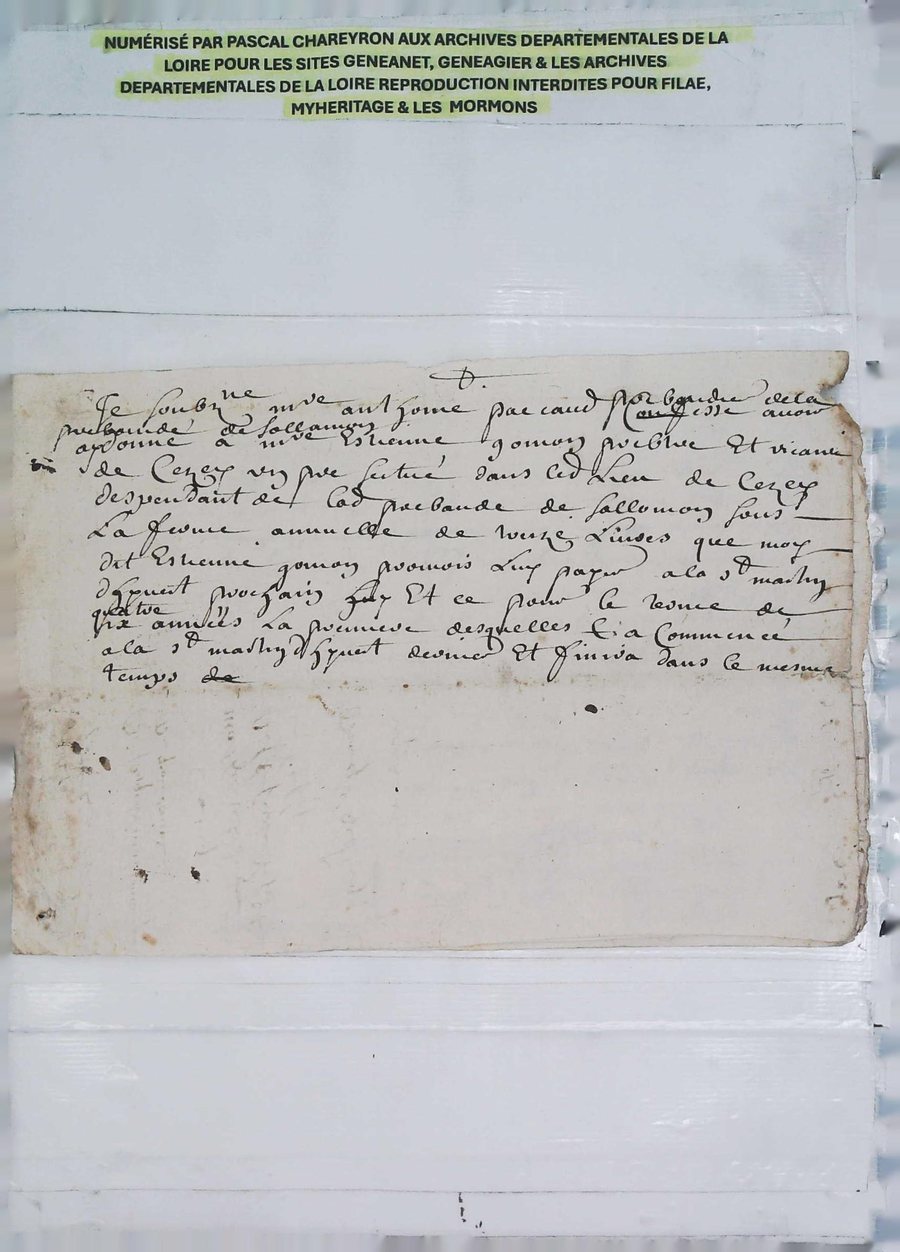 NUMÉRISÉ PAR PASCAL CHAREYRON AUX ARCHIVES DEPARTEMENTALES DE LA
LOIRE POUR LES SITES GENEANET, GENEAGIER & LES ARCHIVES
DEPARTEMENTALES DE LA LOIRE REPRODUCTION INTERDITES POUR FILAE,
MYHERITAGE & LES MORMONS
Je soubzne mre anthome paccaud prebandie de la
prebande de sallamon confesse avoir
a mre Estienne gomon prebtre Et vicaire
de Cezey un pre scitué dans led Lieu de Cezey
despendant de lad prebande de sallomon sous
La ferme annuelle de Livres que moy
dit Estienne gomon promois Luy payer a la st martin
d'hyvert prochain Et ce pour le terme de
quatre
six années La premiere desquelles a Commencé
a la st martin d'hyvert dernier Et finira dans le mesme
temps de